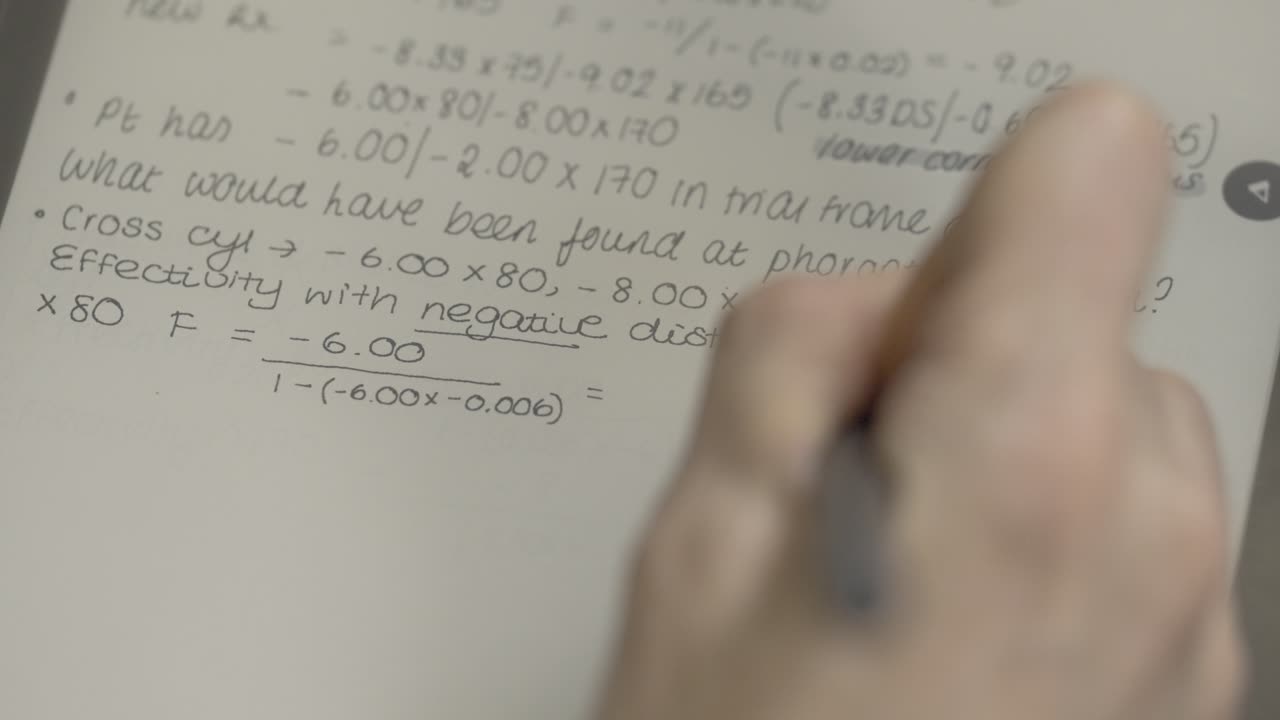 new Rx F = -11/1-(-11x0.02) = -9.02
= -8.33 x 75/-9.02 x 165 (-8.33DS/-0.6 65)
- 6.00x80/-8.00x170 lower corr
• Pt has - 6.00/-2.00 x 170 in trial frame
What would have been found at phoropt ?
• Cross cyl → - 6.00 x 80, - 8.00 x
Effectivity with negative dist
x 80 F = - 6.00
1-(-6.00x-0.006) =